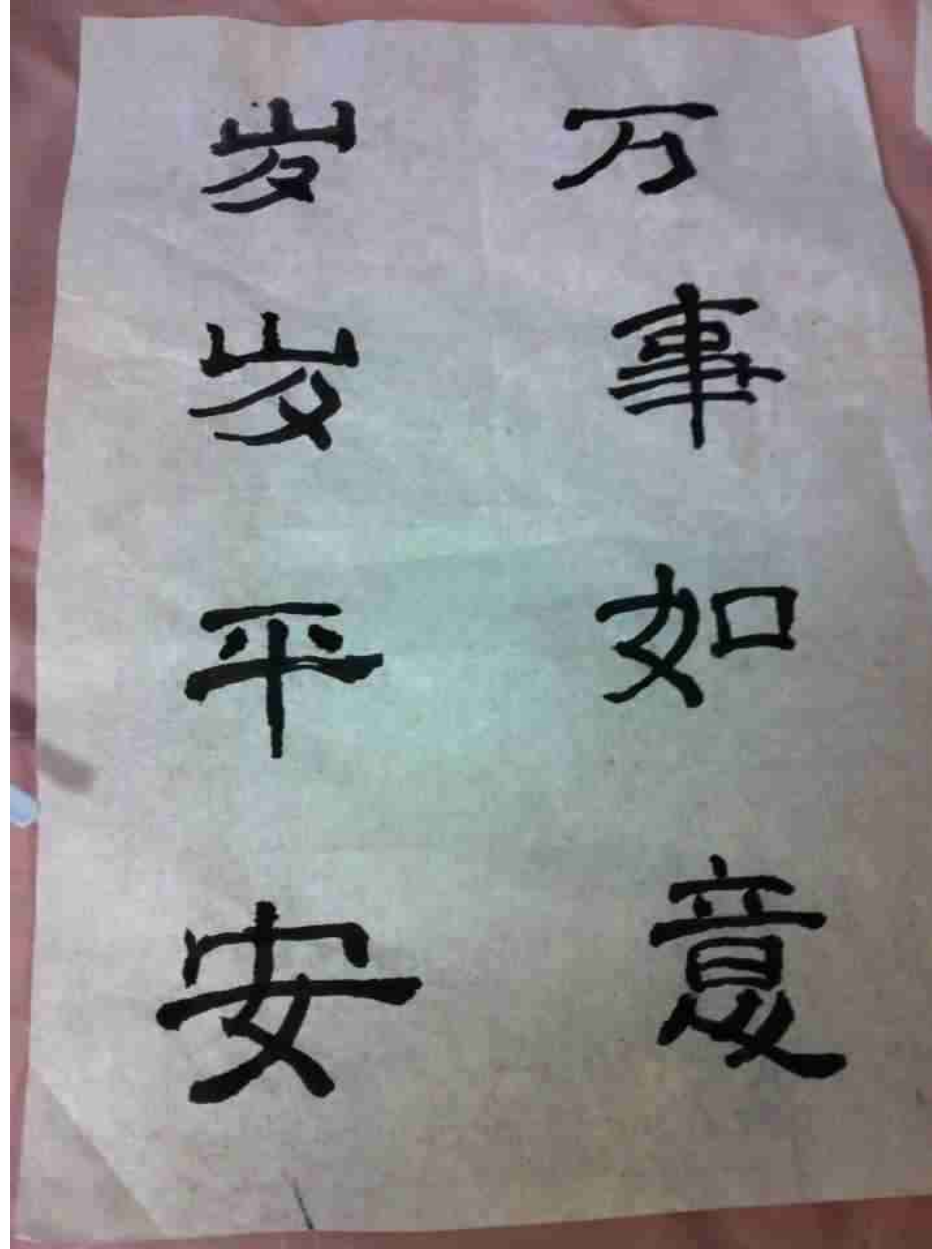 万事如意
岁岁平安